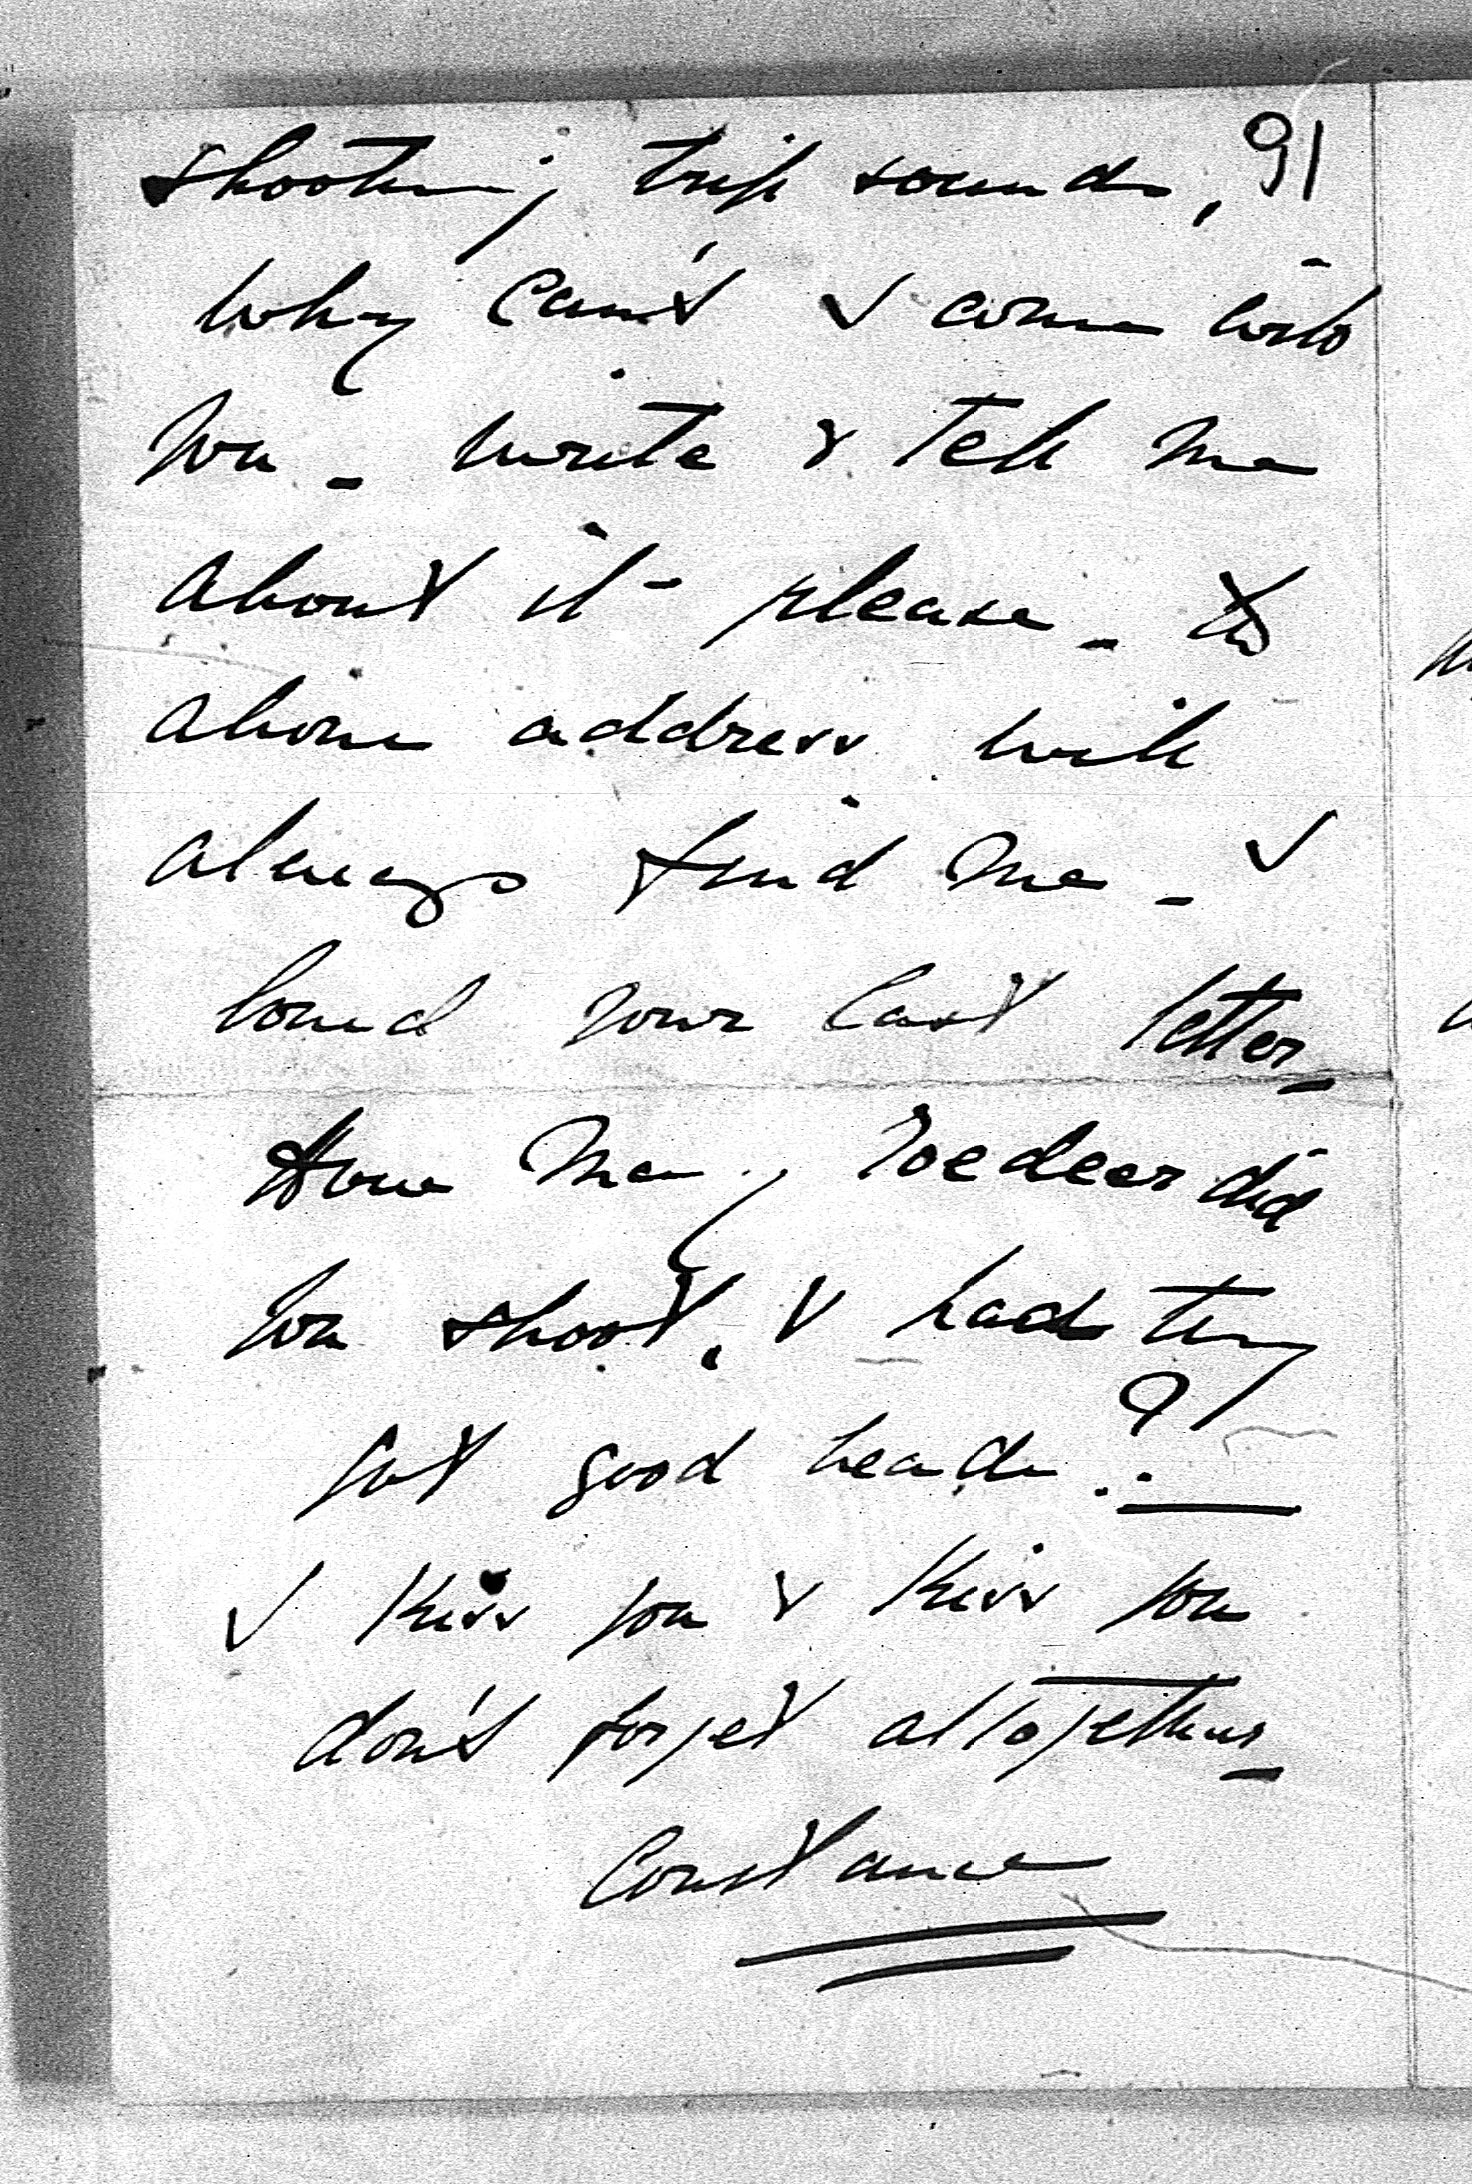 shooting trip sounds, ?!
Why can't I come with
you - write & tell me
about it - please - the
above address will
always find me - I
loved your last letter -
How many roedeer did
you shoot, & had they
got good heads.?!
I kiss you & kiss you
don't forget altogether -
Constance